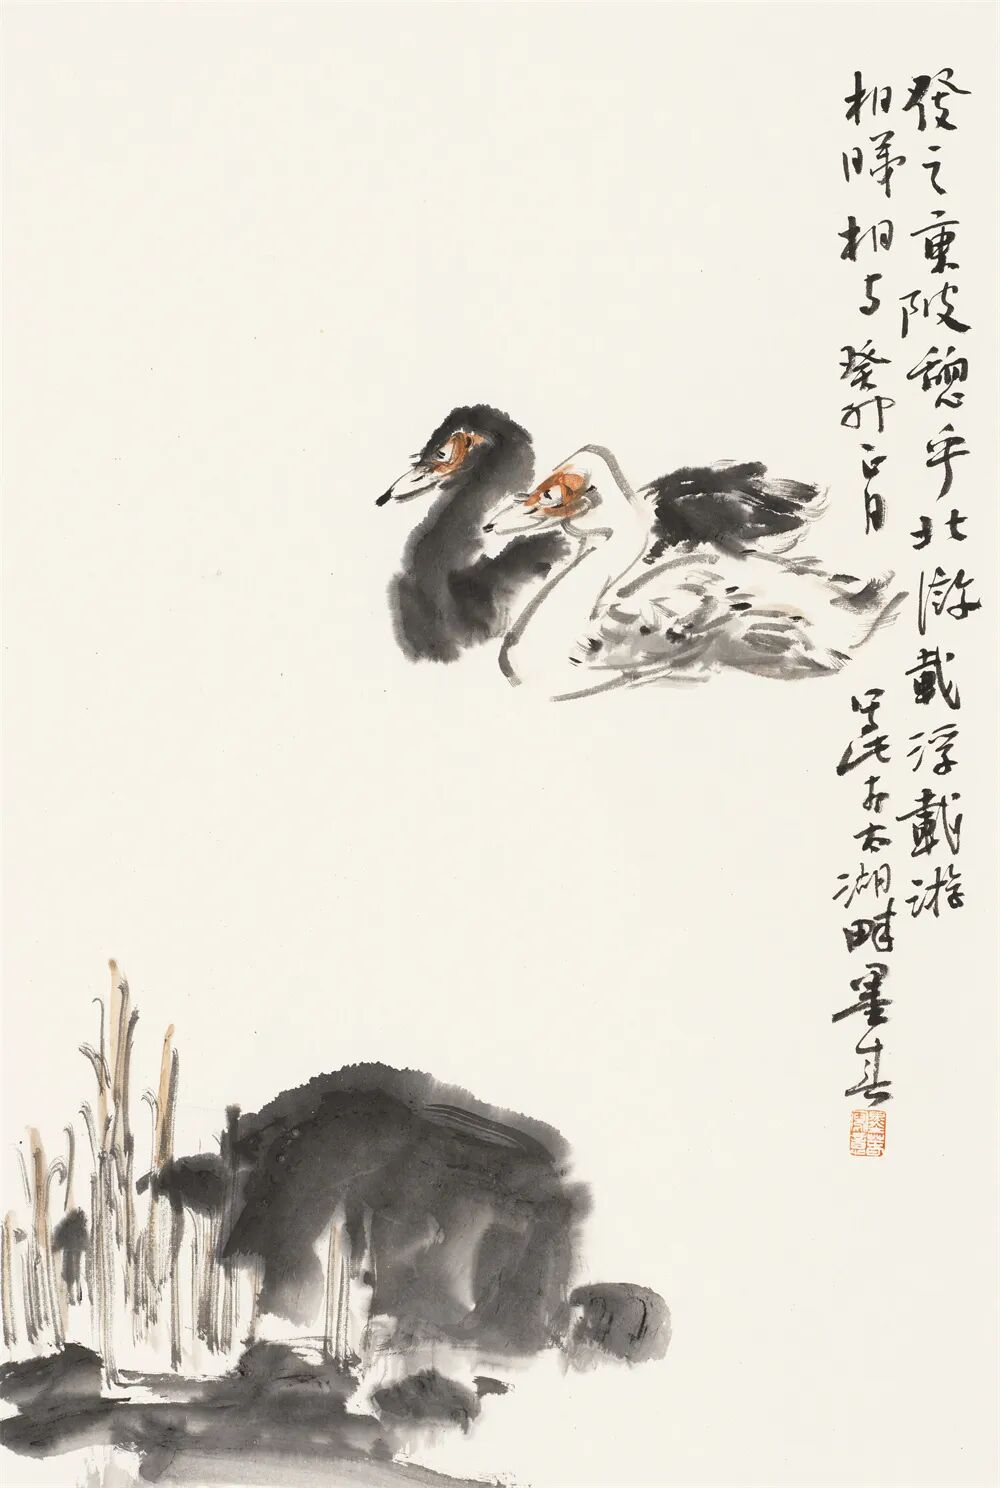 發之東陂憩乎北載浮載游
相相与癸卯正月寫此于太湖畔墨